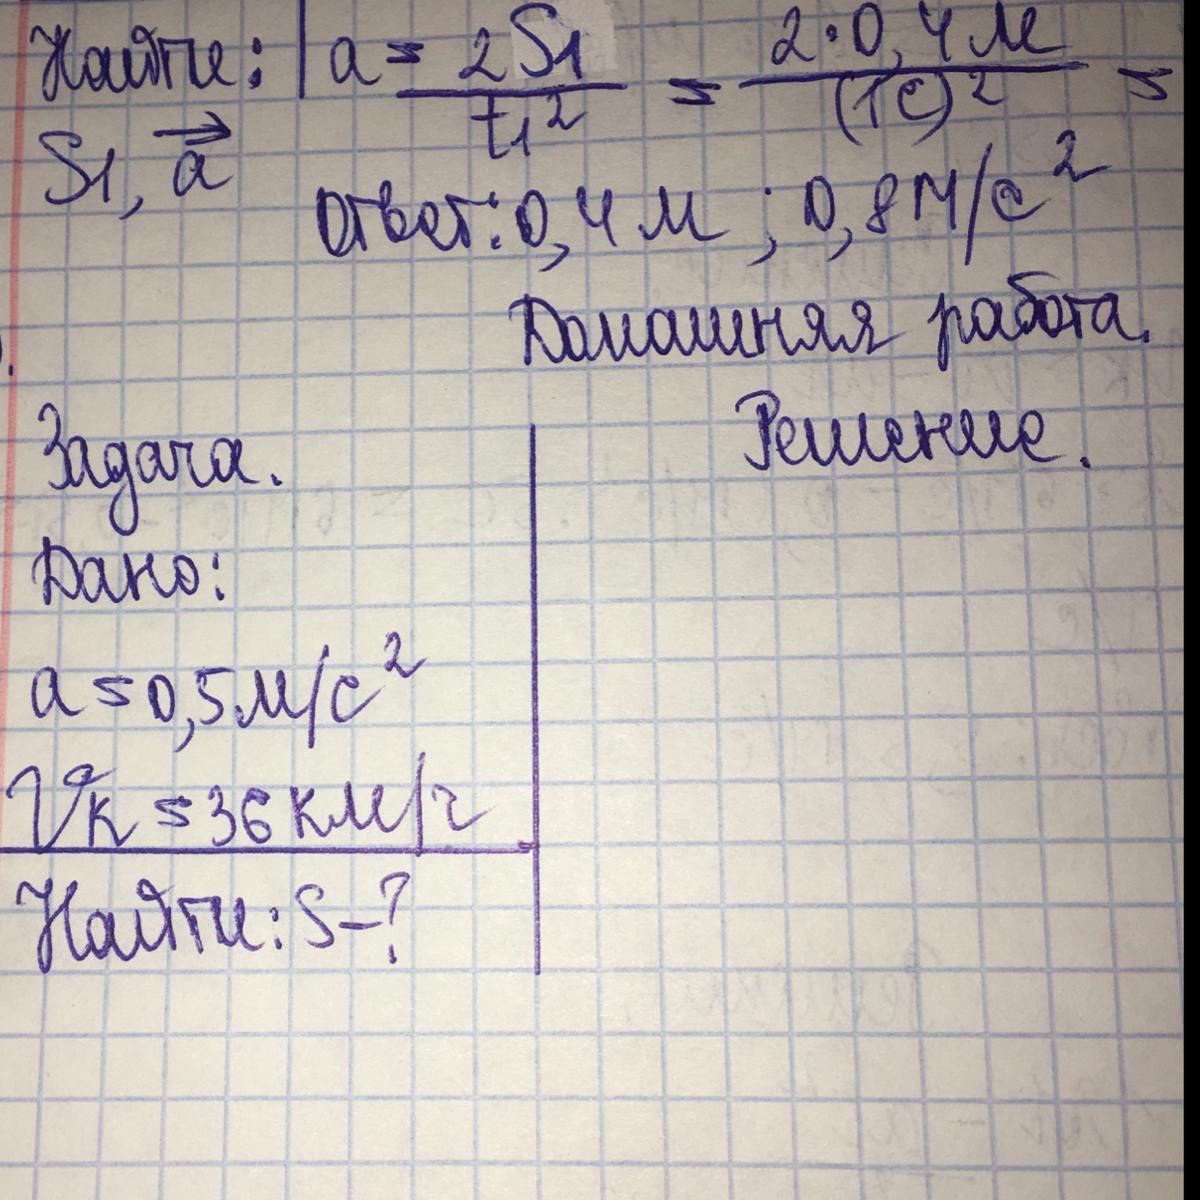 Найти: a = 2S1 / t1² = 2·0,4м / (1с)² =
S1, a⃗
Ответ: 0,4 м ; 0,8 м/с²
Домашняя работа.
Задача. Решение.
Дано:
a = 0,5 м/с²
Vк = 36 км/ч
Найти: S-?